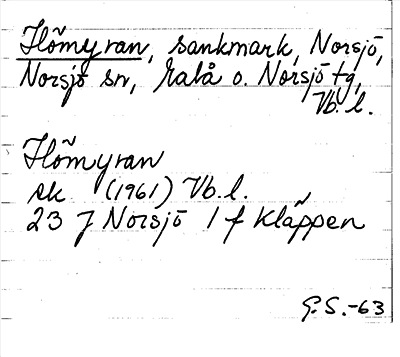 Flõmyran, sankmark, Norsjö,
Norsjö sn, Malå o. Norsjö tg,
Vb. l.
Flõmyran
ek (1961) Vb. l.
23 J Norsjö 1 f Kläppen
G. S. -63